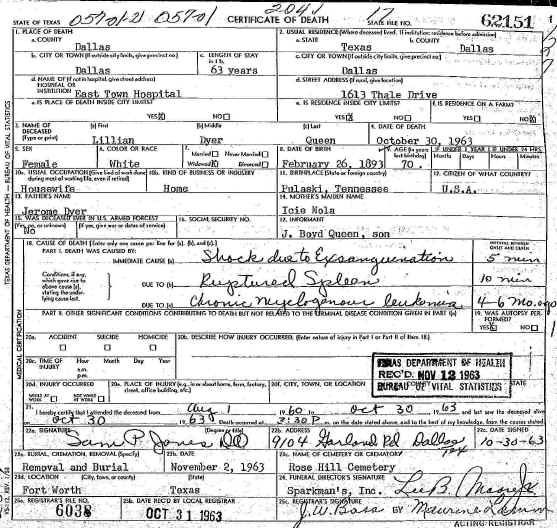 STATE OF TEXAS 05701-2 05701 CERTIFICATE OF DEATH 2041 17 STATE FILE NO. 62151
1. PLACE OF DEATH
a. COUNTY
Dallas
2. USUAL RESIDENCE (Where deceased lived. If institution: residence before admission)
a. STATE
Texas
b. COUNTY
Dallas
b. CITY OR TOWN (If outside city limits, give precinct no.)
Dallas
c. LENGTH OF STAY
63 years
c. CITY OR TOWN (If outside city limits, give precinct no.)
Dallas
d. NAME OF (If not in hospital, give street address)
HOSPITAL OR
INSTITUTION East Town Hospital
d. STREET ADDRESS (If rural, give location)
1613 Thale Drive
e. IS PLACE OF DEATH INSIDE CITY LIMITS?
YES X NO
e. IS RESIDENCE INSIDE CITY LIMITS?
YES X NO
f. IS RESIDENCE ON A FARM?
YES NO X
3. NAME OF
DECEASED
(Type or print)
(a) First
Lillian
(b) Middle
Dyer
(c) Last
Queen
4. DATE OF DEATH
October 30, 1963
5. SEX
Female
6. COLOR OR RACE
White
7.
Married Never Married
Widowed X Divorced
8. DATE OF BIRTH
February 26, 1893
9. AGE (In years last birthday)
70
IF UNDER 1 YEAR
Months Days
IF UNDER 24 HRS.
Hours Min.
10a. USUAL OCCUPATION (Give kind of work done during most of working life, even if retired)
Housewife
10b. KIND OF BUSINESS OR INDUSTRY
Home
11. BIRTHPLACE (State or foreign country)
Pulaski, Tennessee
12. CITIZEN OF WHAT COUNTRY?
U.S.A.
13. FATHER'S NAME
Jerome Dyer
14. MOTHER'S MAIDEN NAME
Icie Nola
15. WAS DECEASED EVER IN U.S. ARMED FORCES?
(If yes, give war or dates of service)
No
16. SOCIAL SECURITY NO.
17. INFORMANT
J. Boyd Queen, son
18. CAUSE OF DEATH [Enter only one cause per line for (a), (b), and (c).]
PART I. DEATH WAS CAUSED BY:
IMMEDIATE CAUSE (a) Shock due to Exsanguination
INTERVAL BETWEEN ONSET AND DEATH
5 min
Conditions, if any, which gave rise to above cause (a), stating the underlying cause last.
DUE TO (b) Ruptured Spleen
10 min
DUE TO (c) Chronic Myelogenous leukemia
4-6 Mo. ago
PART II. OTHER SIGNIFICANT CONDITIONS CONTRIBUTING TO DEATH BUT NOT RELATED TO THE TERMINAL DISEASE CONDITION GIVEN IN PART I(a)
19. WAS AUTOPSY PERFORMED?
YES NO
20a. ACCIDENT SUICIDE HOMICIDE
20b. DESCRIBE HOW INJURY OCCURRED. (Enter nature of injury in Part I or Part II of Item 18.)
20c. TIME OF INJURY
Hour Month Day Year
a.m.
p.m.
TEXAS DEPARTMENT OF HEALTH
REC'D. NOV 12 1963
BUREAU OF VITAL STATISTICS
20d. INJURY OCCURRED
WHILE AT WORK NOT WHILE AT WORK
20e. PLACE OF INJURY (e.g., in or about home, farm, factory, street, office building, etc.)
20f. CITY, TOWN, OR LOCATION COUNTY STATE
21. I hereby certify that I attended the deceased from Aug 1 1960 to Oct 30 1963 and last saw the deceased alive
Oct 30 1963 Death occurred at 3:30 P m. on the date stated above, and to the best of my knowledge, from the causes stated.
22a. SIGNATURE
Sam P. Jones DO
22b. ADDRESS
9104 Garland Rd Dallas Tex
22c. DATE SIGNED
10-30-63
23a. BURIAL, CREMATION, REMOVAL (Specify)
Removal and Burial
23b. DATE
November 2, 1963
23c. NAME OF CEMETERY OR CREMATORY
Rose Hill Cemetery
23d. LOCATION (City, town, or county) (State)
Fort Worth Texas
24. FUNERAL DIRECTOR'S SIGNATURE
Sparkman's, Inc.
25a. REGISTRAR'S FILE NO.
6038
25b. DATE REC'D BY LOCAL REGISTRAR
OCT 31 1963
25c. REGISTRAR'S SIGNATURE
J.W. Bass BY Maurine
ACTING REGISTRAR
TEXAS DEPARTMENT OF HEALTH — BUREAU OF VITAL STATISTICS
MEDICAL CERTIFICATION